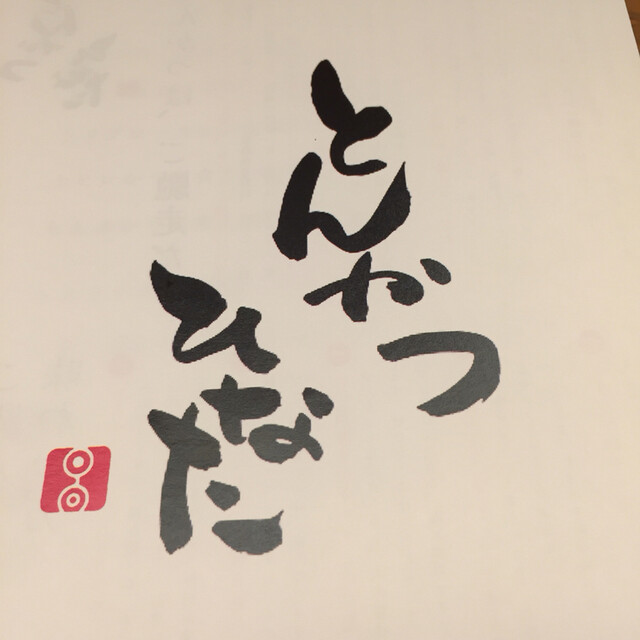 とんかつ
ひなた